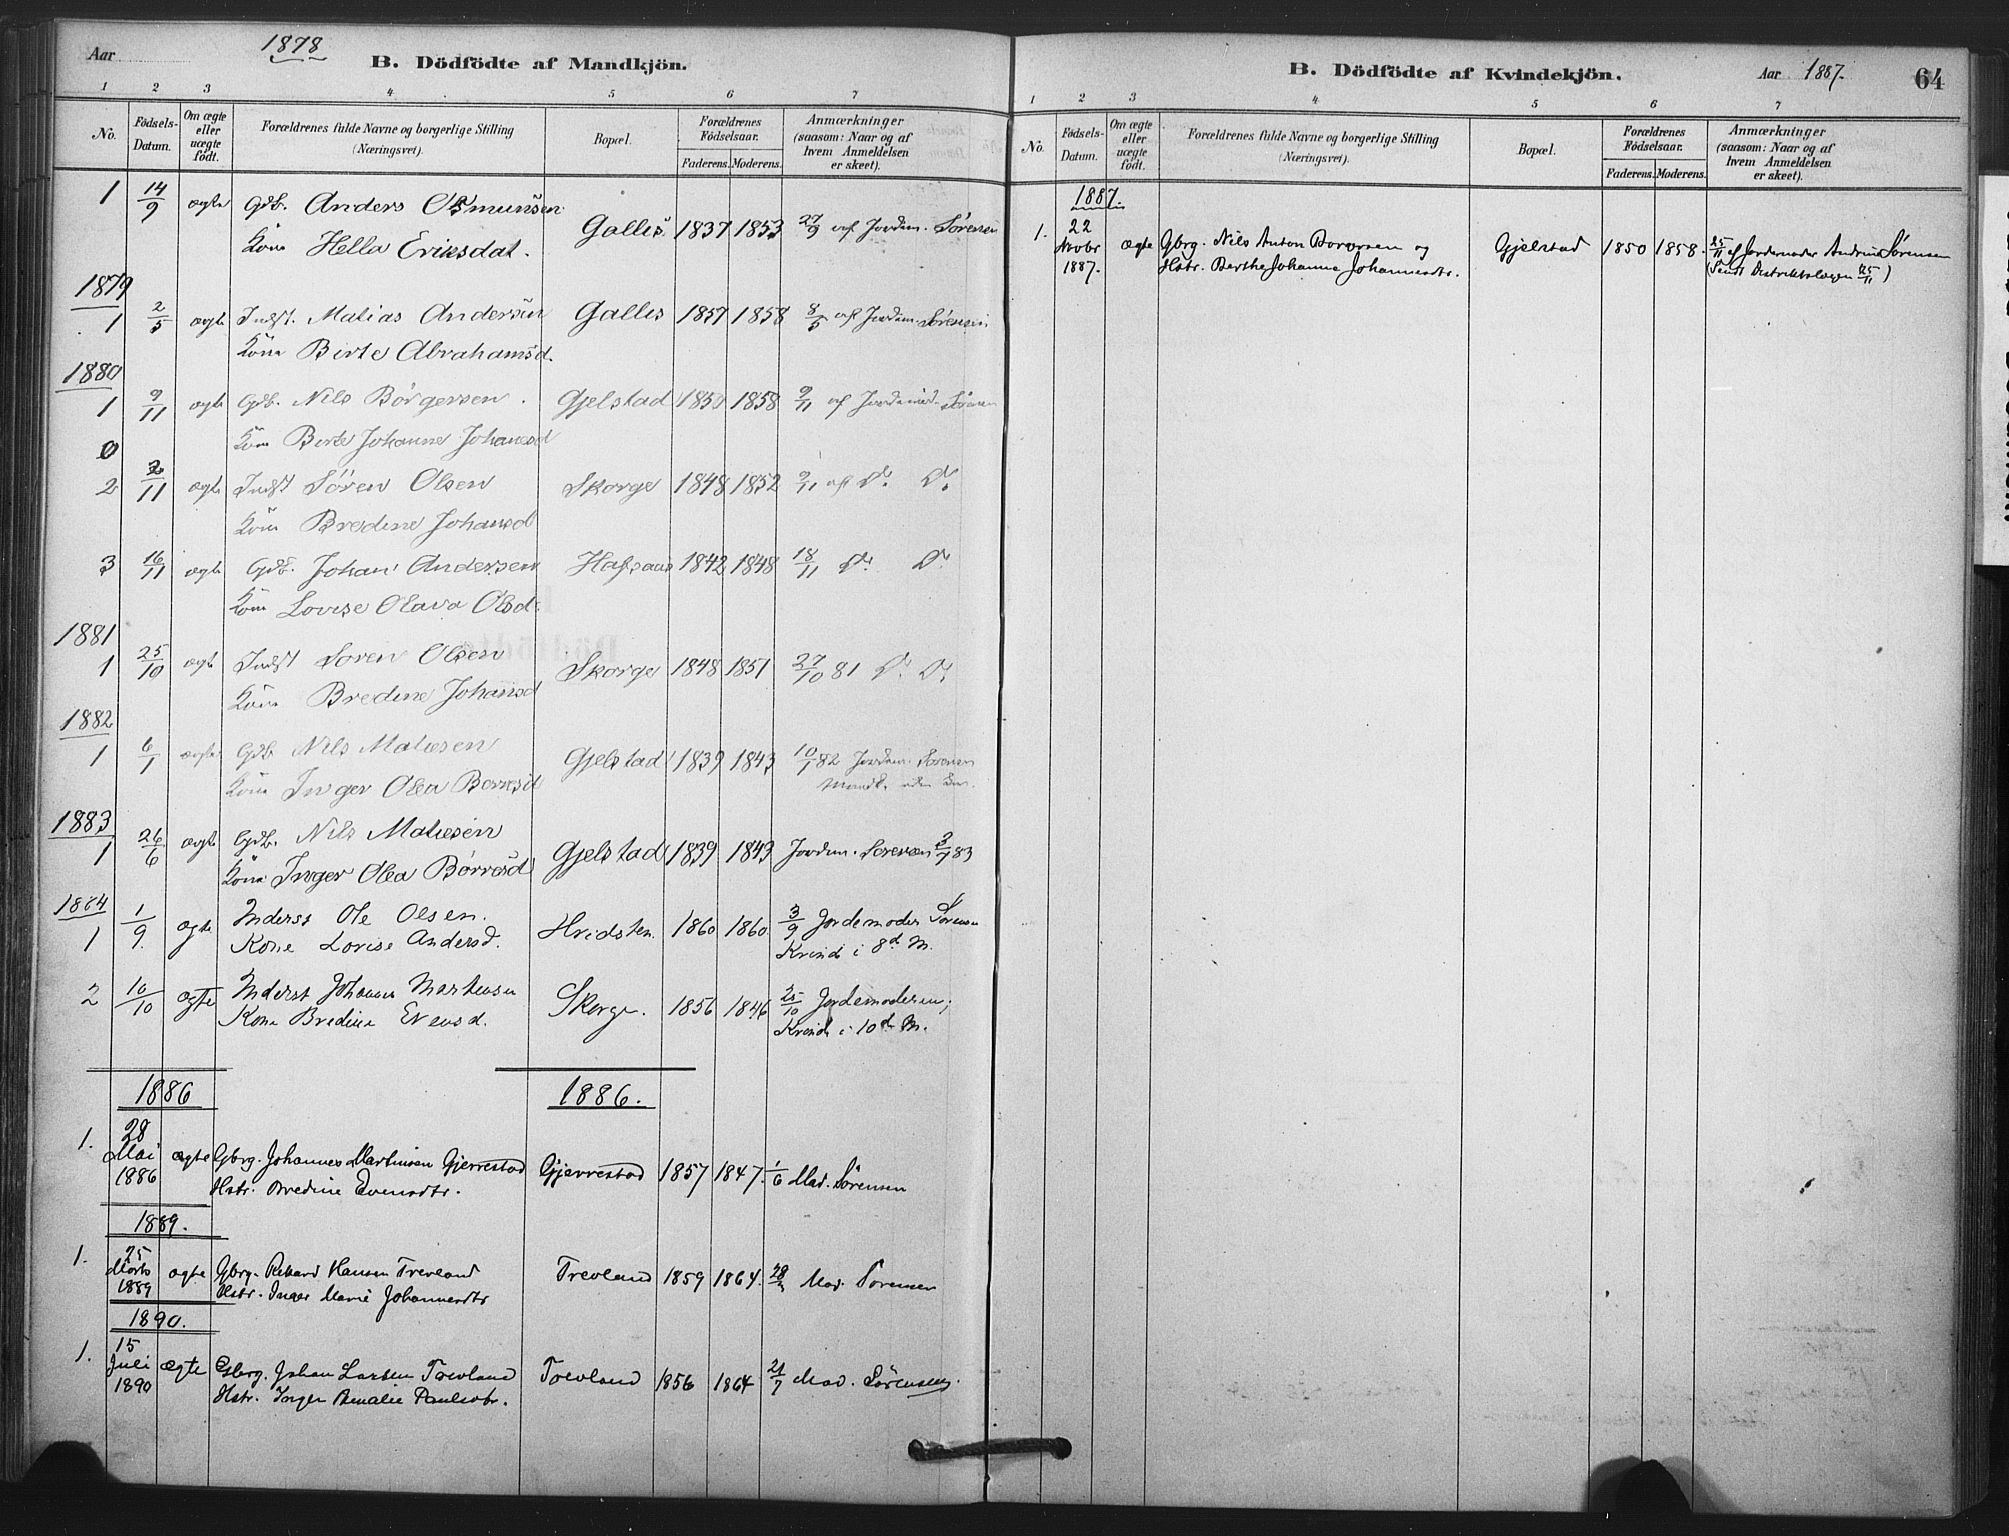 Aar 1878
B. Dödfödte af Mandkjön.
1 2 3 4 5 6 7
No. Födsels-Datum. Om ægte eller uægte födt. Forældrenes fulde Navne og borgerlige Stilling (Næringsvei). Bopæl. Forældrenes Födselsaar. Faderens. Moderens. Anmærkninger (saasom: Naar og af hvem Anmeldelsen er skeet).
1 14/9 ægte Gdb. Anders Osmunsen
Kone Hella Eriksdat. Gallis 1837 1853 27/9 af Jordm. Sørensen
1879
1 2/5 ægte Indst. Matias Andersen Gallis 1857 1858 8/5 af Jordm. Sørensen
Kone Birte Abrahamsd.
1880
1 9/11 ægte Gdb. Nils Börgersen. Gjelstad 1850 1858 9/11 af Jordemod. Sörensen
Kone Birte Johanne Johansd
0
2 2/11 ægte Indst Sören Olsen Skorge 1848 1852 9/11 af Do. Do.
Kone Bredine Johansd
3 16/11 ægte Gdb. Johan Andersen Hafsaas 1842 1848 18/11 Do. Do.
Kone Lovise Olava Olsd.
1881
1 25/10 ægte Indst Soren Olsen Skorge 1848 1851 27/10 81 Do. Do.
Kone Bredine Johansd
1882
1 6/1 ægte Gdb Nils Matiesen Gjelstad 1839 1843 10/1 82 Jordm. Sorensen
Kone Inger Olea Borresd
1883
1 26/6 ægte Gdb. Nils Matiesen Gjelstad 1839 1843 Jordm. Sorensen 3/7 83
Kone Inger Olea Börresd
1884
1 1/9 ægte Inderst Ole Olsen. Hridsten 1860 1860 3/9 Jordemoder Sørensen
Kone Lovise Andersd. Kvind i 8de M.
2 10/10 ægte Inderst Johannes Martensen Skorge. 1856 1846 25/10 Jordemoderen;
Kone Bredine Evensd. Kvind i 10de M.
1886 1886.
1. 28 Mai 1886 ægte Gbrg. Johannes Martinsen Gjerrestad Gjerrestad 1857 1847. 1/6 Mad. Sörensen
Hstr. Bredine Evensdtr.
1889.
1. 25 Marts 1889 ægte Gbrg. Rikard Hansen Trevland Trevland 1859 1864. 28/3 Mad. Sorensen
Hstr. Inger Marie Johannesdtr
1890.
1. 15 Juli 1890 ægte Gbrg. Johan Larsen Trevland Trevland 1856 1864 21/7 Mad. Sørensen.
Hstr. Inger Amalie Paulsdtr.
B. Dödfödte af Kvindekjön. Aar 1887. 64
1 2 3 4 5 6 7
No. Födsels-Datum. Om ægte eller uægte födt. Forældrenes fulde Navne og borgerlige Stilling (Næringsvei). Bopæl. Forældrenes Födselsaar. Faderens. Moderens. Anmærkninger (saasom: Naar og af hvem Anmeldelsen er skeet).
1887.
1. 22 Novbr 1887. ægte Gbrg. Nils Anton Borgersen og Gjelstad 1850 1858. 25/11 af Jordemoder Andrine Sørensen
Hstr. Berthe Johanne Johannesdtr. (Sendt Distriktslægen 25/11)